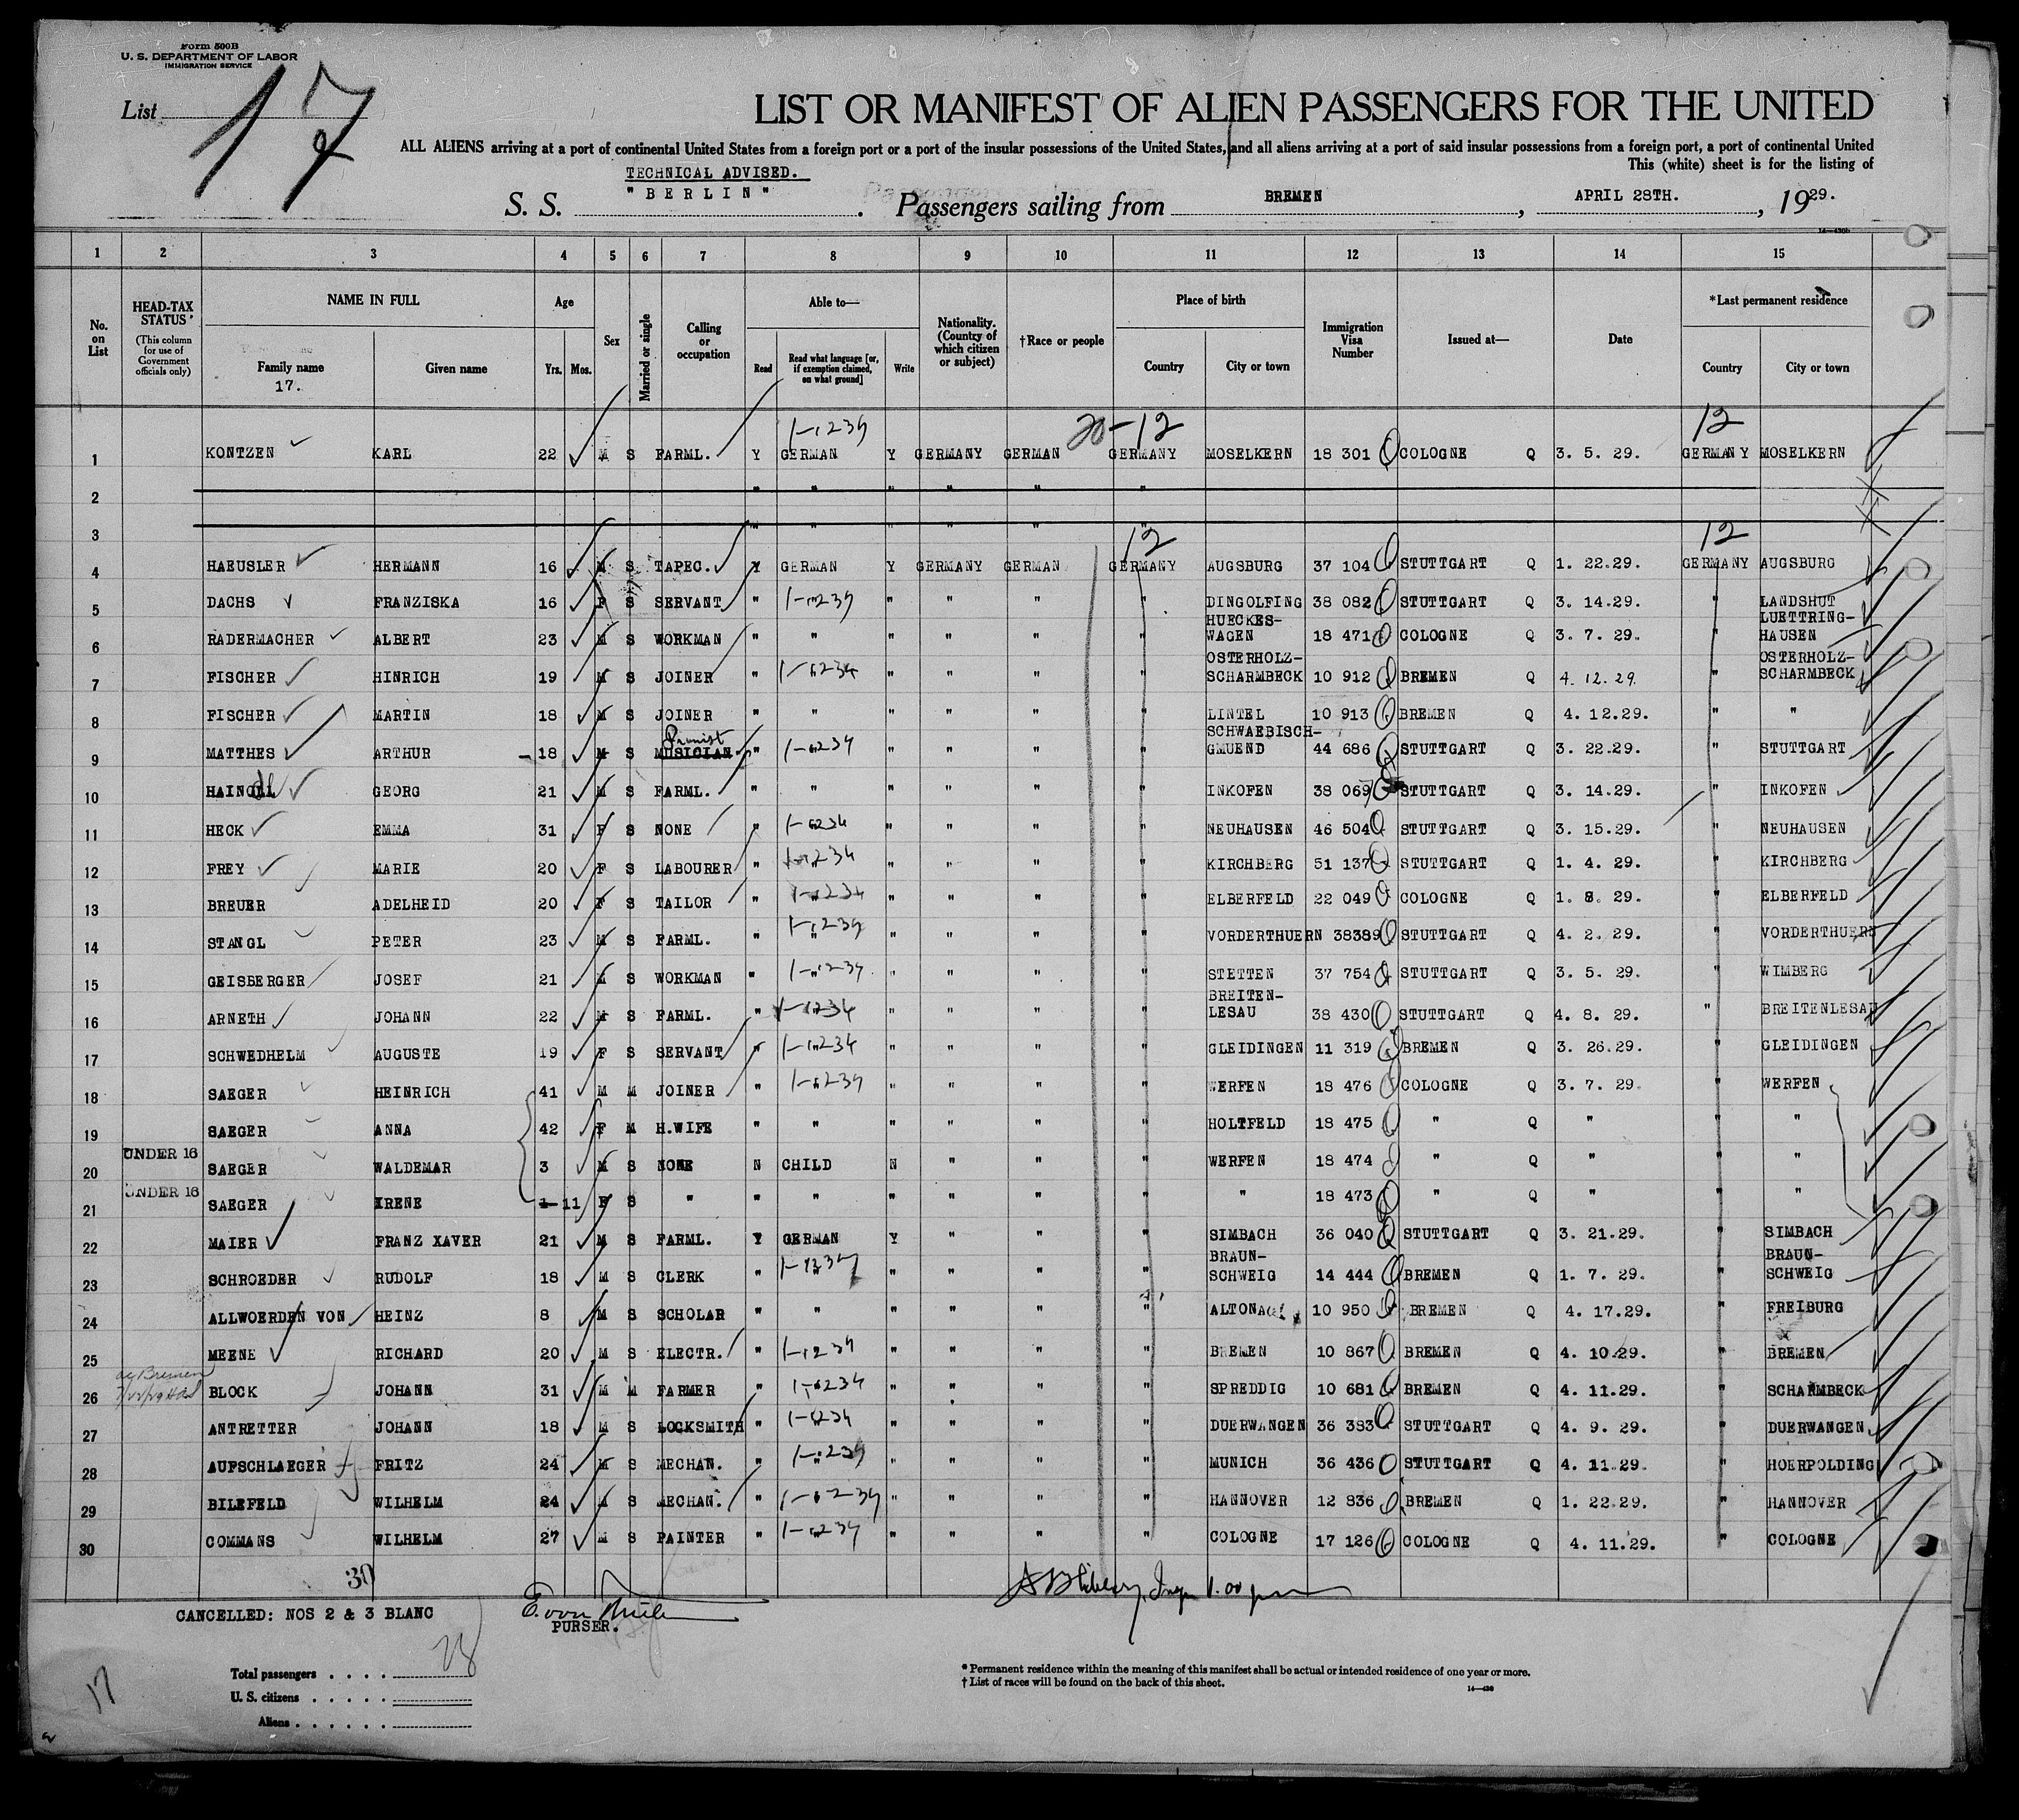 Form 500B
U. S. DEPARTMENT OF LABOR
IMMIGRATION SERVICE
List 17
LIST OR MANIFEST OF ALIEN PASSENGERS FOR THE UNITED
ALL ALIENS arriving at a port of continental United States from a foreign port or a port of the insular possessions of the United States, and all aliens arriving at a port of said insular possessions from a foreign port, a port of continental United
This (white) sheet is for the listing of
TECHNICAL ADVISED.
S. S. "BERLIN". Passengers sailing from BREMEN, APRIL 28TH., 1929.
14—430b
1 2 3 4 5 6 7 8 9 10 11 12 13 14 15
No. on List
HEAD-TAX STATUS
(This column for use of Government officials only)
NAME IN FULL
Family name
17.
Given name
Age
Yrs. Mos.
Sex
Married or single
Calling or occupation
Able to—
Read
Read what language [or, if exemption claimed, on what ground]
Write
Nationality. (Country of which citizen or subject)
†Race or people
Place of birth
Country
City or town
Immigration Visa Number
Issued at—
Date
*Last permanent residence
Country
City or town
20-12 12
1 KONTZEN KARL 22 M S FARML. Y GERMAN Y GERMANY GERMAN GERMANY MOSELKERN 18 301 COLOGNE Q 3. 5. 29. GERMANY MOSELKERN
2 " " " " " "
3 " " " " " "
12 12
4 HAEUSLER HERMANN 16 M S TAPEC. Y GERMAN Y GERMANY GERMAN GERMANY AUGSBURG 37 104 STUTTGART Q 1. 22.29. GERMANY AUGSBURG
5 DACHS FRANZISKA 16 F S SERVANT " " " " " " DINGOLFING 38 082 STUTTGART Q 3. 14.29. " LANDSHUT
6 RADERMACHER ALBERT 23 M S WORKMAN " " " " " " HUECKES-WAGEN 18 471 COLOGNE Q 3. 7. 29. " LUETTRING-HAUSEN
7 FISCHER HINRICH 19 M S JOINER " " " " " " OSTERHOLZ-SCHARMBECK 10 912 BREMEN Q 4. 12. 29. " OSTERHOLZ-SCHARMBECK
8 FISCHER MARTIN 18 M S JOINER " " " " " " LINTEL 10 913 BREMEN Q 4. 12.29. " "
9 MATTHES ARTHUR 18 M S MUSICIAN Pianist " " " " " " SCHWAEBISCH-GMUEND 44 686 STUTTGART Q 3. 22.29. " STUTTGART
10 GEORG 21 M S FARML. " " " " " " INKOFEN 38 069 STUTTGART Q 3. 14.29. " INKOFEN
11 HECK EMMA 31 F S NONE " " " " " " NEUHAUSEN 46 504 STUTTGART Q 3. 15.29. " NEUHAUSEN
12 FREY MARIE 20 F S LABOURER " " " " " " KIRCHBERG 51 137 STUTTGART Q 1. 4. 29. " KIRCHBERG
13 BREUER ADELHEID 20 F S TAILOR " " " " " " ELBERFELD 22 049 COLOGNE Q 1. 8. 29. " ELBERFELD
14 STANGL PETER 23 M S FARML. " " " " " " VORDERTHUERN 38389 STUTTGART Q 4. 2. 29. " VORDERTHUERN
15 GEISBERGER JOSEF 21 M S WORKMAN " " " " " " STETTEN 37 754 STUTTGART Q 3. 5. 29. " WIMBERG
16 ARNETH JOHANN 22 M S FARML. " " " " " " BREITEN-LESAU 38 430 STUTTGART Q 4. 8. 29. " BREITENLESAU
17 SCHWEDHELM AUGUSTE 19 F S SERVANT " " " " " " GLEIDINGEN 11 319 BREMEN Q 3. 26.29. " GLEIDINGEN
18 SAEGER HEINRICH 41 M M JOINER " " " " " " WERFEN 18 476 COLOGNE Q 3. 7. 29. " WERFEN
19 SAEGER ANNA 42 F M H.WIFE " " " " " " HOLTFELD 18 475 " Q " " "
20 UNDER 16 SAEGER WALDEMAR 3 M S NONE N CHILD N " " " WERFEN 18 474 " Q " " "
21 UNDER 16 SAEGER IRENE 1-11 F S " " " " " " " " 18 473 " Q " " "
22 MAIER FRANZ XAVER 21 M S FARML. Y GERMAN Y " " " SIMBACH 36 040 STUTTGART Q 3. 21.29. " SIMBACH
23 SCHROEDER RUDOLF 18 M S CLERK " " " " " " BRAUN-SCHWEIG 14 444 BREMEN Q 1. 7. 29. " BRAUN-SCHWEIG
24 ALLWOERDEN VON HEINZ 8 M S SCHOLAR " " " " " " ALTONA 10 950 BREMEN Q 4. 17.29. " FREIBURG
25 MEENE RICHARD 20 M S ELECTR. " " " " " " BREMEN 10 867 BREMEN Q 4. 10.29. " BREMEN
26 BLOCK JOHANN 31 M M FARMER " " " " " " SPREDDIG 10 681 BREMEN Q 4. 11.29. " SCHARMBECK
27 ANTRETTER JOHANN 18 M S LOCKSMITH " " " " " " DUERWANGEN 36 383 STUTTGART Q 4. 9. 29. " DUERWANGEN
28 AUFSCHLAEGER FRITZ 24 M S MECHAN. " " " " " " MUNICH 36 436 STUTTGART Q 4. 11.29. " HOERPOLDING
29 BILEFELD WILHELM 24 M S MECHAN. " " " " " " HANNOVER 12 836 BREMEN Q 1. 22.29. " HANNOVER
30 COMMANS WILHELM 27 M S PAINTER " " " " " " COLOGNE 17 126 COLOGNE Q 4. 11.29. " COLOGNE
30
CANCELLED: NOS 2 & 3 BLANC
PURSER.
Total passengers . . . . 28
U. S. citizens . . . . .
Aliens . . . . . .
17
* Permanent residence within the meaning of this manifest shall be actual or intended residence of one year or more.
† List of races will be found on the back of this sheet.
14—430